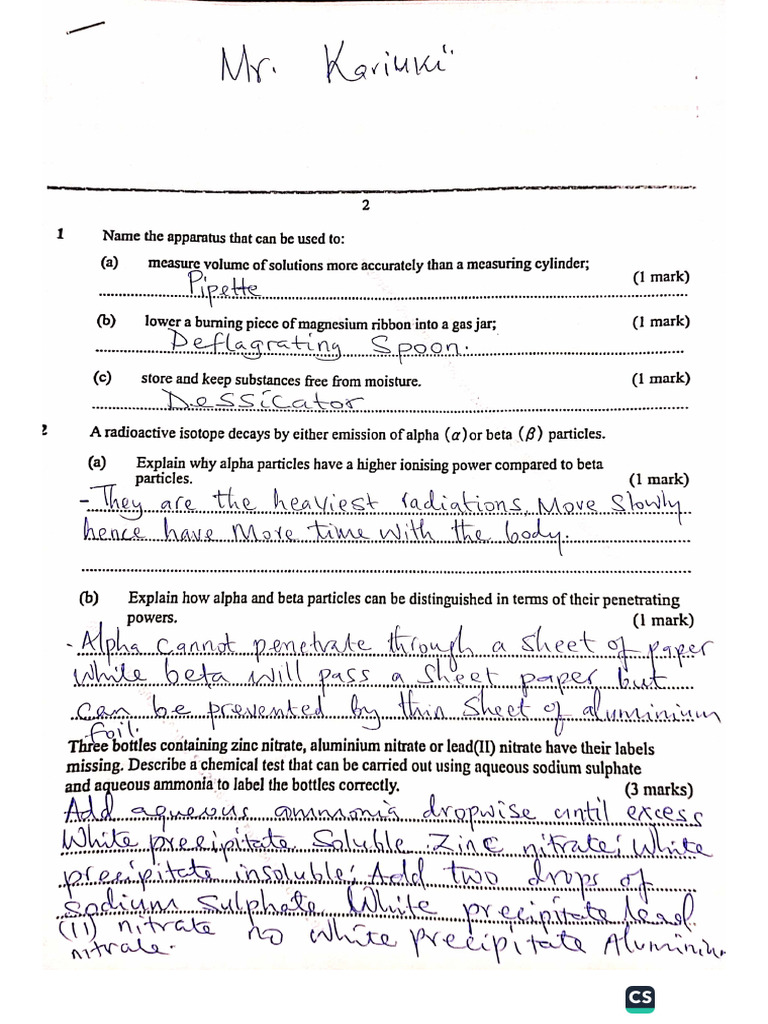 Mr. Kariuki
2
1 Name the apparatus that can be used to:
(a) measure volume of solutions more accurately than a measuring cylinder; (1 mark)
Pipette
(b) lower a burning piece of magnesium ribbon into a gas jar; (1 mark)
Deflagrating Spoon.
(c) store and keep substances free from moisture. (1 mark)
Dessicator
2 A radioactive isotope decays by either emission of alpha (α) or beta (β) particles.
(a) Explain why alpha particles have a higher ionising power compared to beta
particles. (1 mark)
- They are the heaviest radiations. Move slowly
hence have More time with the body.
(b) Explain how alpha and beta particles can be distinguished in terms of their penetrating
powers. (1 mark)
- Alpha cannot penetrate through a sheet of paper
While beta will pass a sheet paper but
can be prevented by thin sheet of aluminium
foil.
Three bottles containing zinc nitrate, aluminium nitrate or lead(II) nitrate have their labels
missing. Describe a chemical test that can be carried out using aqueous sodium sulphate
and aqueous ammonia to label the bottles correctly. (3 marks)
Add aqueous ammonia dropwise until excess
White precipitate Soluble Zinc nitrate; White
precipitate insoluble; Add two drops of
Sodium Sulphate White precipitate lead
(II) nitrate no white precipitate Aluminium
nitrate.
CS